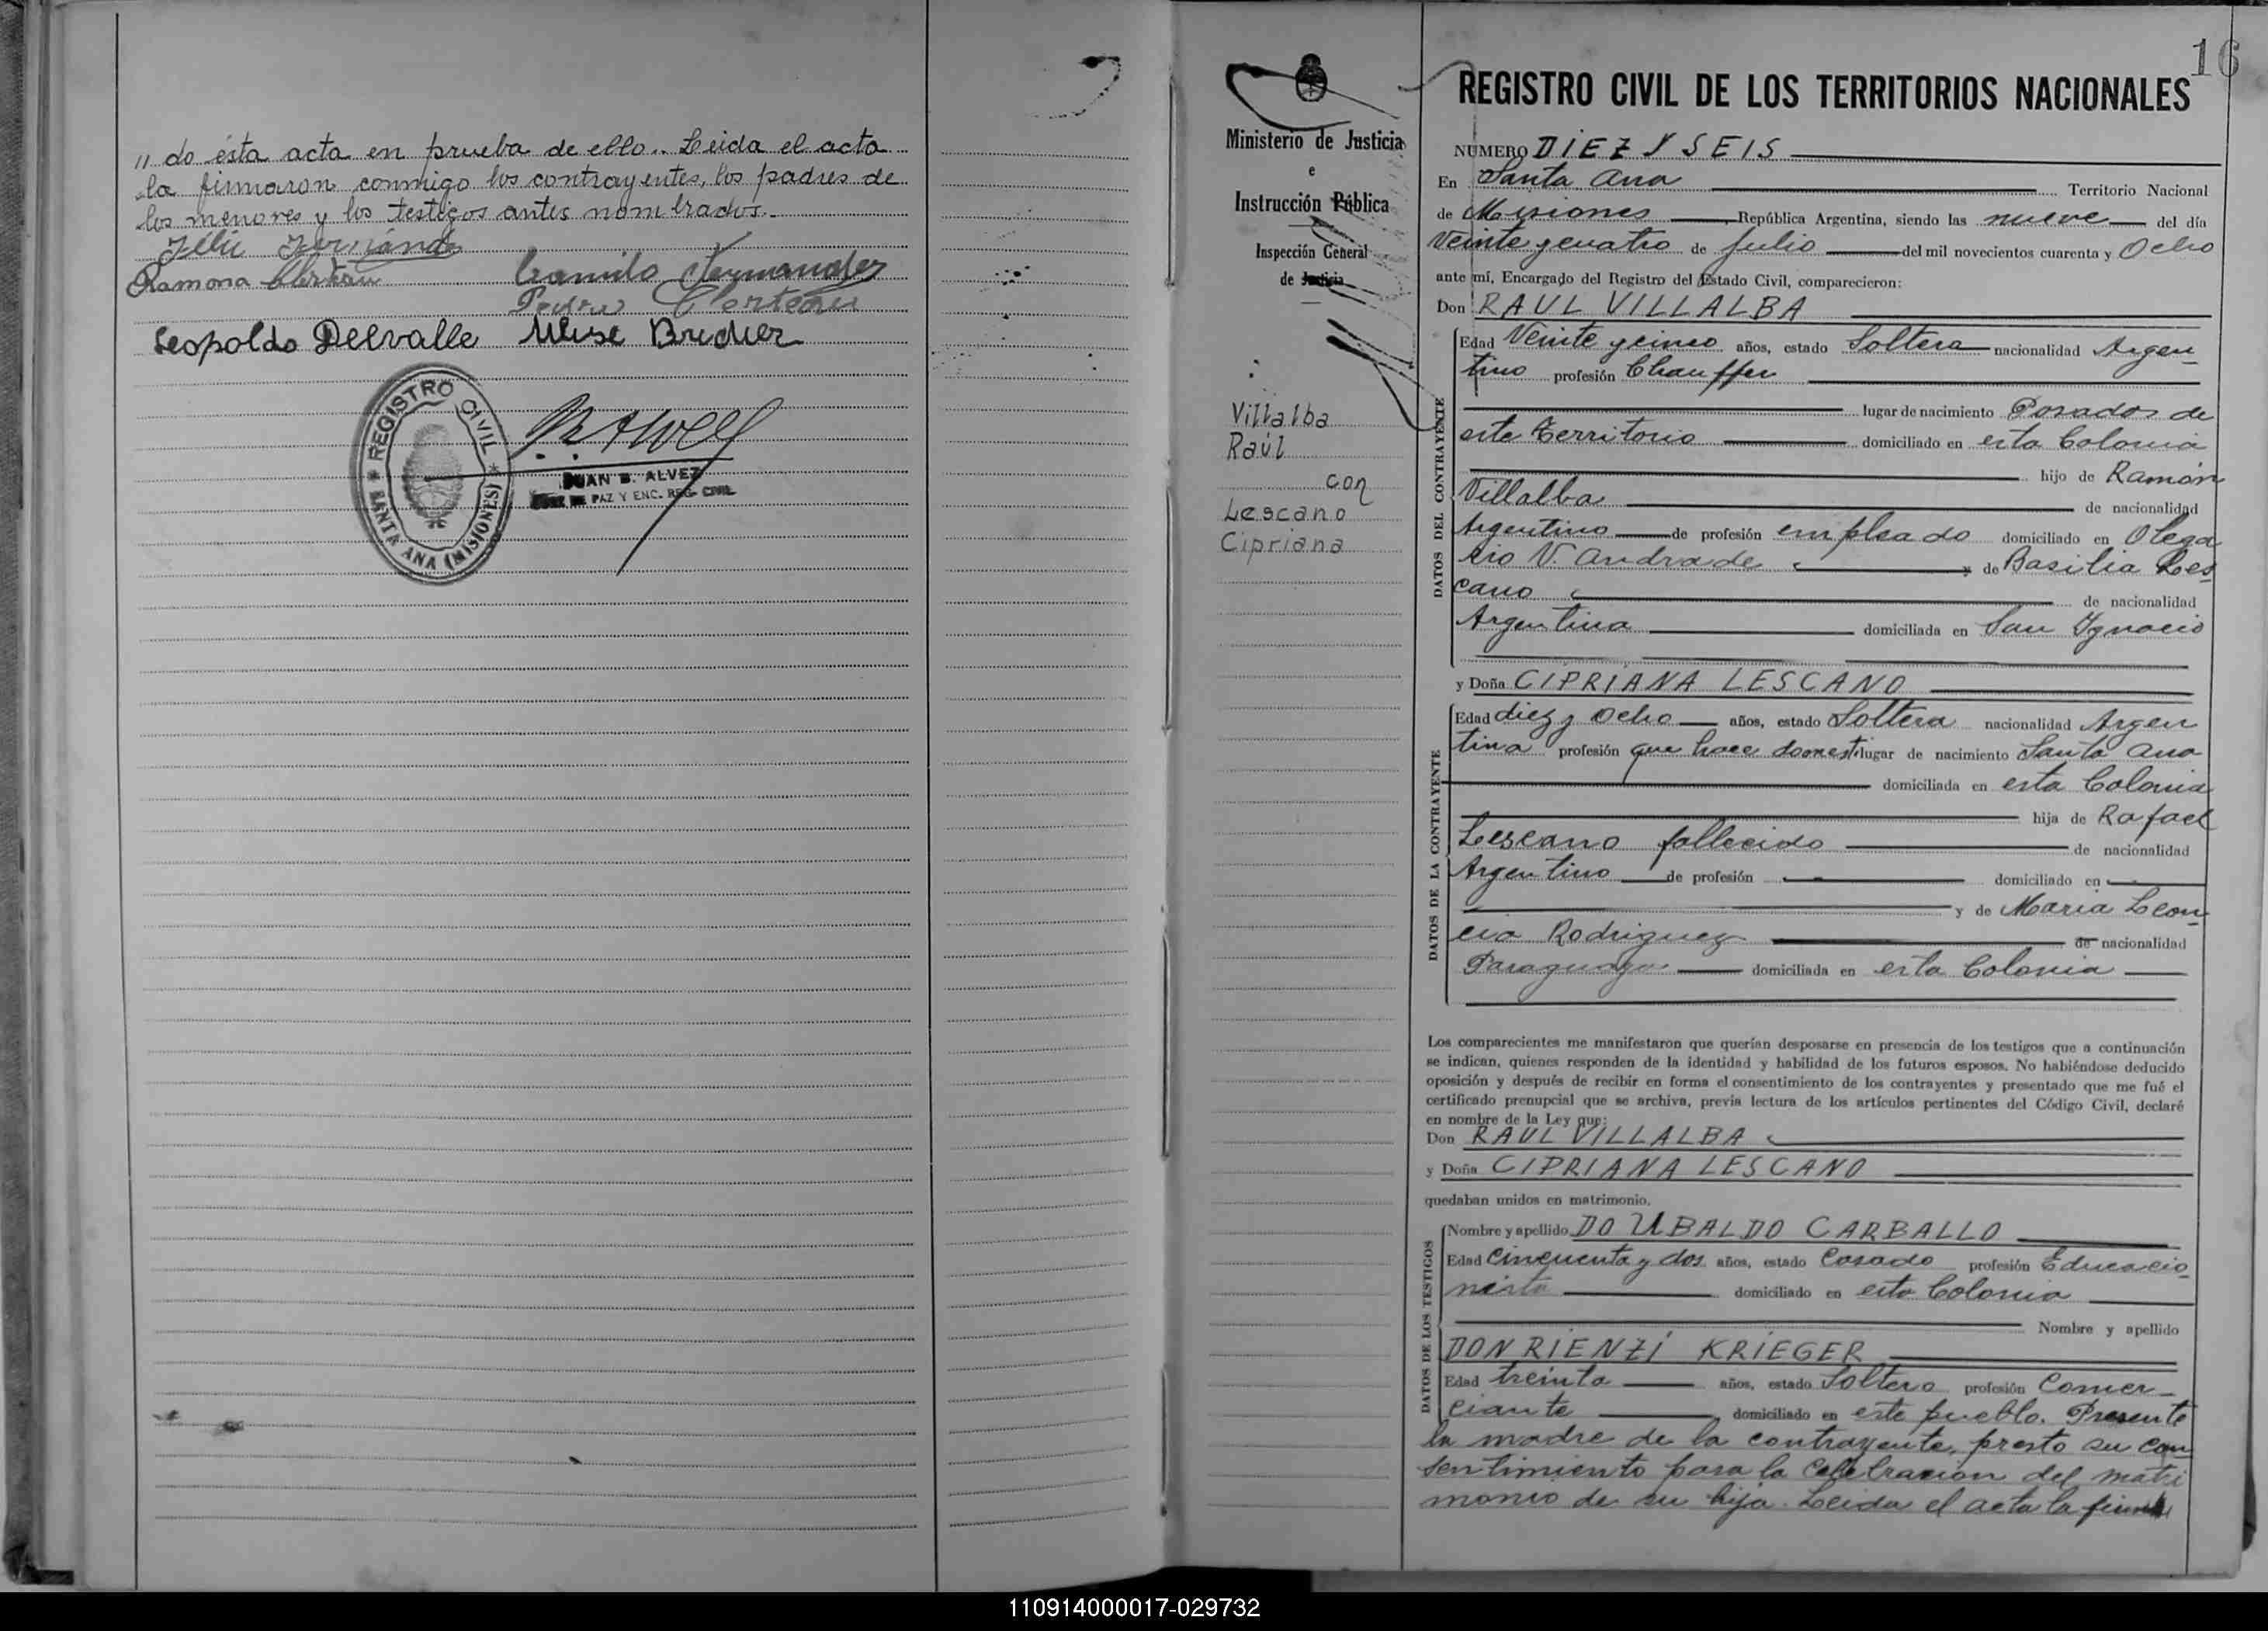 " do ésta acta en prueba de ello.. Leida el acta
la firmaron conmigo los contrayentes, los padres de
los menores y los testigos antes nombrados.
Ramona
Camilo Fernandez
Pedro
Leopoldo Delvalle Ulise Bredier
REGISTRO CIVIL
SANTA ANA (MISIONES)
JUAN B. ALVEZ
JUEZ DE PAZ Y ENC. REG. CIVIL
16
Ministerio de Justicia
e
Instrucción Pública
Inspección General
de Justicia
Villalba
Raúl
con
Lescano
Cipriana
REGISTRO CIVIL DE LOS TERRITORIOS NACIONALES
NÚMERO DIEZ Y SEIS
En Santa Ana Territorio Nacional
de Misiones República Argentina, siendo las nueve del día
Veinte y cuatro de Julio del mil novecientos cuarenta y Ocho
ante mí, Encargado del Registro del Estado Civil, comparecieron:
Don RAUL VILLALBA
DATOS DEL CONTRAYENTE
Edad Veinte y cinco años, estado Soltero nacionalidad Argen
tino profesión Chauffer
lugar de nacimiento Posadas de
este Territorio domiciliado en esta Colonia
hijo de Ramón
Villalba de nacionalidad
Argentino de profesión empleado domiciliado en Olega
rio V. Andrade y de Basilia Les
cano de nacionalidad
Argentina domiciliada en San Ygnacio
y Doña CIPRIANA LESCANO
DATOS DE LA CONTRAYENTE
Edad diez y Ocho años, estado Soltera nacionalidad Argen
tina profesión que hace domest. lugar de nacimiento Santa Ana
domiciliada en esta Colonia
hija de Rafael
Lescano fallecido de nacionalidad
Argentino de profesión domiciliado en
y de Maria Leon
cia Rodriguez de nacionalidad
Paraguaya domiciliada en esta Colonia
Los comparecientes me manifestaron que querían desposarse en presencia de los testigos que a continuación
se indican, quienes responden de la identidad y habilidad de los futuros esposos. No habiéndose deducido
oposición y después de recibir en forma el consentimiento de los contrayentes y presentado que me fué el
certificado prenupcial que se archiva, previa lectura de los artículos pertinentes del Código Civil, declaré
en nombre de la Ley que:
Don RAUL VILLALBA
y Doña CIPRIANA LESCANO
quedaban unidos en matrimonio.
DATOS DE LOS TESTIGOS
Nombre y apellido DO UBALDO CARBALLO
Edad Cincuenta y dos años, estado Casado profesión Educacio
nista domiciliado en esta Colonia
Nombre y apellido
DON RIENZI KRIEGER
Edad treinta años, estado Soltero profesión Comer
ciante domiciliado en este pueblo. Presente
la madre de la contrayente, presto su con
sentimiento para la celebracion del matri
monio de su hija. Leida el acta la
110914000017-029732